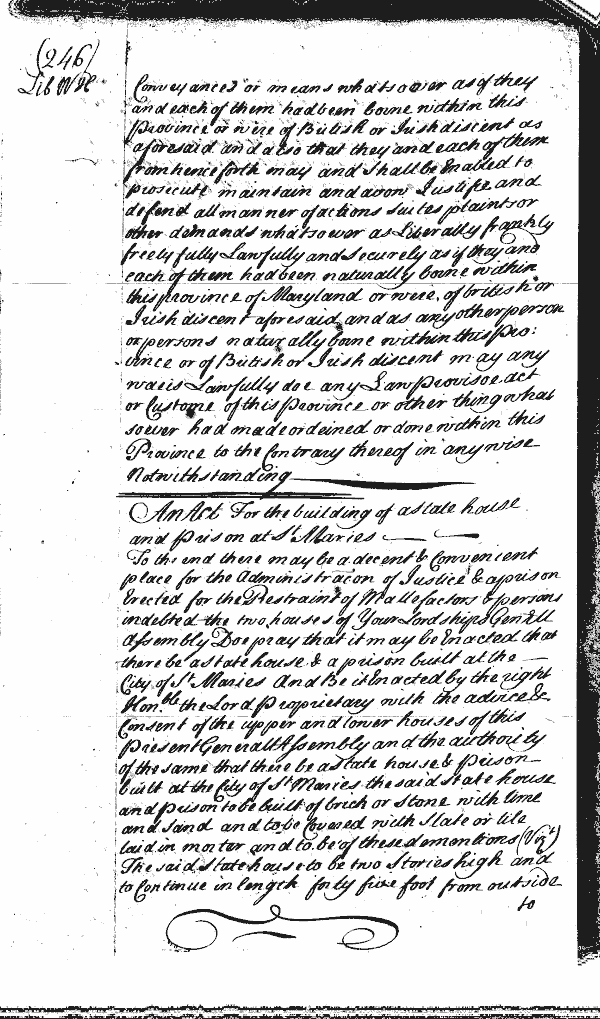 (246)
Lib W H
Conveyances or means whatsoever as if they
and each of them had been borne within this
Province or were of Brittish or Irish discent as
aforesaid and also that they and each of them
from henceforth may and shall be Enabled to
prosecute maintain and avow Justifie and
defend all manner of actions suites plaints or
other demands whatsoever as Liberally frankly
freely fully Lawfully and securely as if they and
each of them had been naturally borne within
this province of Maryland or were, of brittish or
Irish discent aforesaid and as any other person
or persons naturally borne within this Pro:
vince or of Brittish or Irish discent may any
waeis Lawfully doe any Law Provisoe act
or Custome of this Province or other thing what
soever had made ordeined or done within this
Province to the Contrary thereof in any wise
Notwithstanding
An Act For the building of a state house
and Prison at St Maries
To the end there may be a decent & Convenient
place for the Administracon of Justice & a prison
Erected for the Restraint of Mallefactors & persons
indebted the two houses of Your Lordships Genall
Assembly Doe pray that it may be Enacted that
there be a state house & a prison built at the
City of St Maries And Be it Enacted by the right
Honble the Lord Proprietary with the advice &
Consent of the upper and lower houses of this
Present Generall Assembly and the authority
of the same that there be a state house & Prison
built at the City of St Maries the said state house
and Prison to be built of brick or Stone with lime
and Sand and to be Covered with Slate or tile
laid in mortar and to be of these dementions (Vizt)
The said state house to be two Stories high and
to Continue in length forty five foot from outside
to